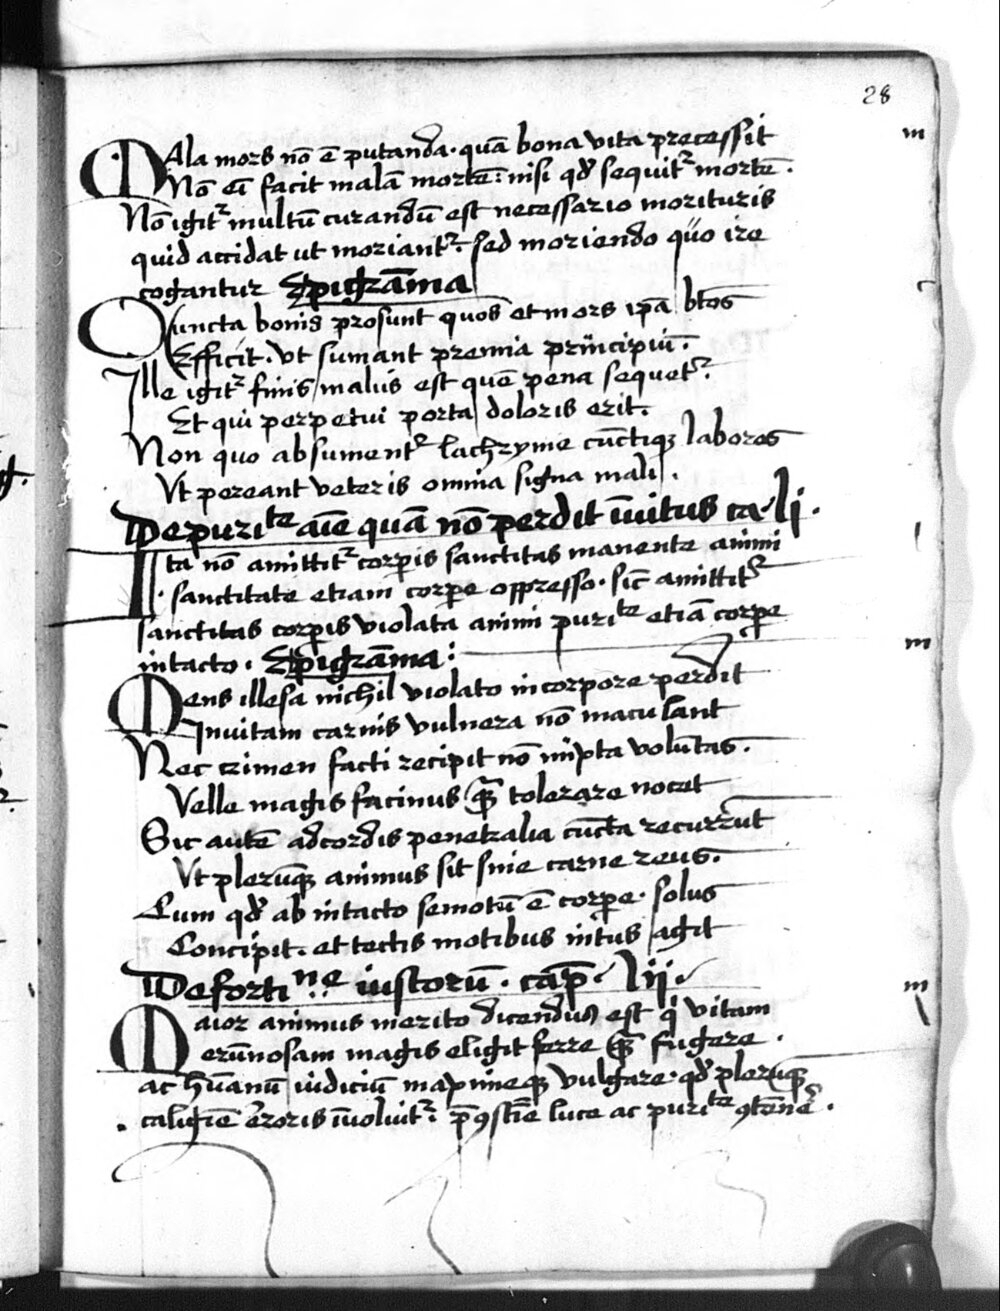 28
m
MAla mors nō ē putanda· quā bona vita precessit
Nō eī facit malā mortē: nisi qđ sequitᷣ mortē.
Nō igitᷣ multū curandū est necessario morituris
quid accidat ut moriantᷣ. sed moriendo quo ire
cogantur Epigrāma
c
Cuncta bonis prosunt quos et mors ip̄a btōs
Efficit. Vt sumant premia principiū.
Ille igitᷣ finis malus est quē pena sequetᷣ.
Et qui perpetui porta doloris erit.
Non quo absumentᷣ lachryme cūctiqꝫ labores
Vt pereant veteris omnia signa mali.
De purite aīe quā nō perdit īuitus ca. li.
I
Ita nō amittitᷣ corꝑis sanctitas manente animi
sanctitate etiam corꝑe oppresso. sic̄ amittitᷣ
sanctitas corꝑis violata animi purite etiā corꝑe
m
intacto. Epigrāma:
Mens illesa nichil violato in corpore perdit
Inuitam carnis vulnera nō maculant
Nec crimen facti recipit nō mixta volūtas.
Velle magis facinus qᷓꝫ tolerare nocet
Sic autē ad cordis penetralia cūcta recurrūt
Vt plerūqꝫ animus sit sine carne reus.
Cum qđ ab intacto semotū ē corꝑe. solus
Concipit. et tectis motibus intus agit
De fortine iustorū. cap̄. lii.
m
Maior animus merito dicendus est qi vitam
erūnosam magis eligit ferre qᷓꝫ fugere.
ac hūanū iudiciū maximeqꝫ vulgare. qđ plerūqꝫ
caligīe erroris īuoluitᷣ. p̄ ꝯsciē luce ac purite ꝯtēnē.